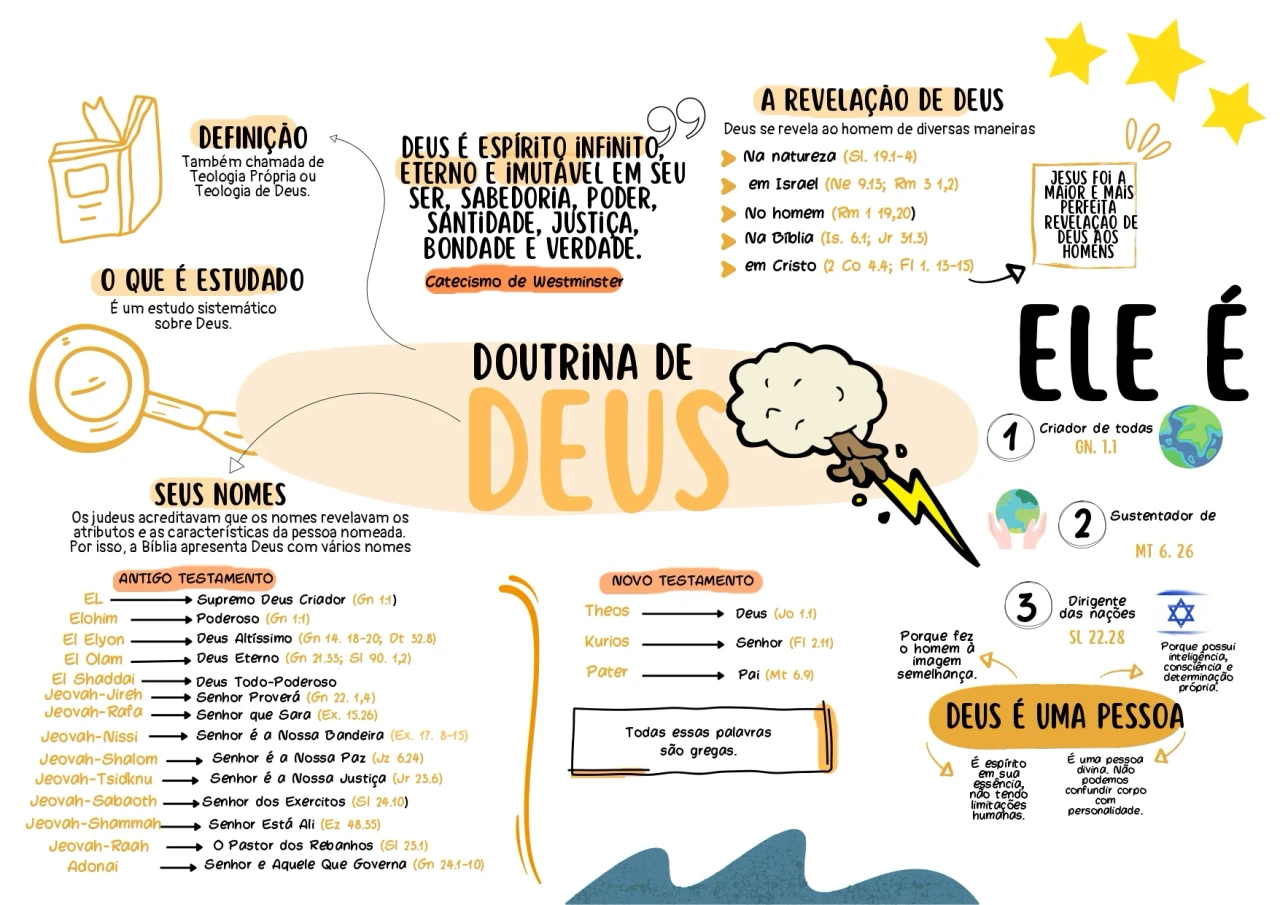 DEFINIÇÃO
Também chamada de
Teologia Própria ou
Teologia de Deus.
DEUS É ESPÍRITO INFINITO,
ETERNO E IMUTÁVEL EM SEU
SER, SABEDORIA, PODER,
SANTIDADE, JUSTIÇA,
BONDADE E VERDADE.
Catecismo de Westminster
A REVELAÇÃO DE DEUS
Deus se revela ao homem de diversas maneiras
Na natureza (Sl. 19.1-4)
em Israel (Ne 9.13; Rm 3 1,2)
No homem (Rm 1 19,20)
Na Bíblia (Is. 6.1; Jr 31.3)
em Cristo (2 Co 4.4; Fl 1. 13-15)
JESUS FOI A
MAIOR E MAIS
PERFEITA
REVELAÇÃO DE
DEUS AOS
HOMENS
O QUE É ESTUDADO
É um estudo sistemático
sobre Deus.
DOUTRINA DE
DEUS
ELE É
1
Criador de todas
GN. 1.1
2
Sustentador de
MT 6. 26
3
Dirigente
das nações
SL 22.28
SEUS NOMES
Os judeus acreditavam que os nomes revelavam os
atributos e as características da pessoa nomeada.
Por isso, a Bíblia apresenta Deus com vários nomes
ANTIGO TESTAMENTO
EL Supremo Deus Criador (Gn 1:1)
Elohim Poderoso (Gn 1:1)
El Elyon Deus Altíssimo (Gn 14. 18-20; Dt 32.8)
El Olam Deus Eterno (Gn 21.33; Sl 90. 1,2)
El Shaddai Deus Todo-Poderoso
Jeovah-Jireh Senhor Proverá (Gn 22. 1,4)
Jeovah-Rafa Senhor que Sara (Ex. 15.26)
Jeovah-Nissi Senhor é a Nossa Bandeira (Ex. 17. 8-15)
Jeovah-Shalom Senhor é a Nossa Paz (Jz 6.24)
Jeovah-Tsidknu Senhor é a Nossa Justiça (Jr 23.6)
Jeovah-Sabaoth Senhor dos Exercitos (Sl 24.10)
Jeovah-Shammah Senhor Está Ali (Ez 48.35)
Jeovah-Raah O Pastor dos Rebanhos (Sl 23.1)
Adonai Senhor e Aquele Que Governa (Gn 24.1-10)
NOVO TESTAMENTO
Theos Deus (Jo 1.1)
Kurios Senhor (Fl 2.11)
Pater Pai (Mt 6.9)
Todas essas palavras
são gregas.
Porque fez
o homem à
imagem
semelhança.
Porque possui
inteligência,
consciência e
determinação
própria.
DEUS É UMA PESSOA
É espírito
em sua
essência,
não tendo
limitações
humanas.
É uma pessoa
divina. Não
podemos
confundir corpo
com
personalidade.